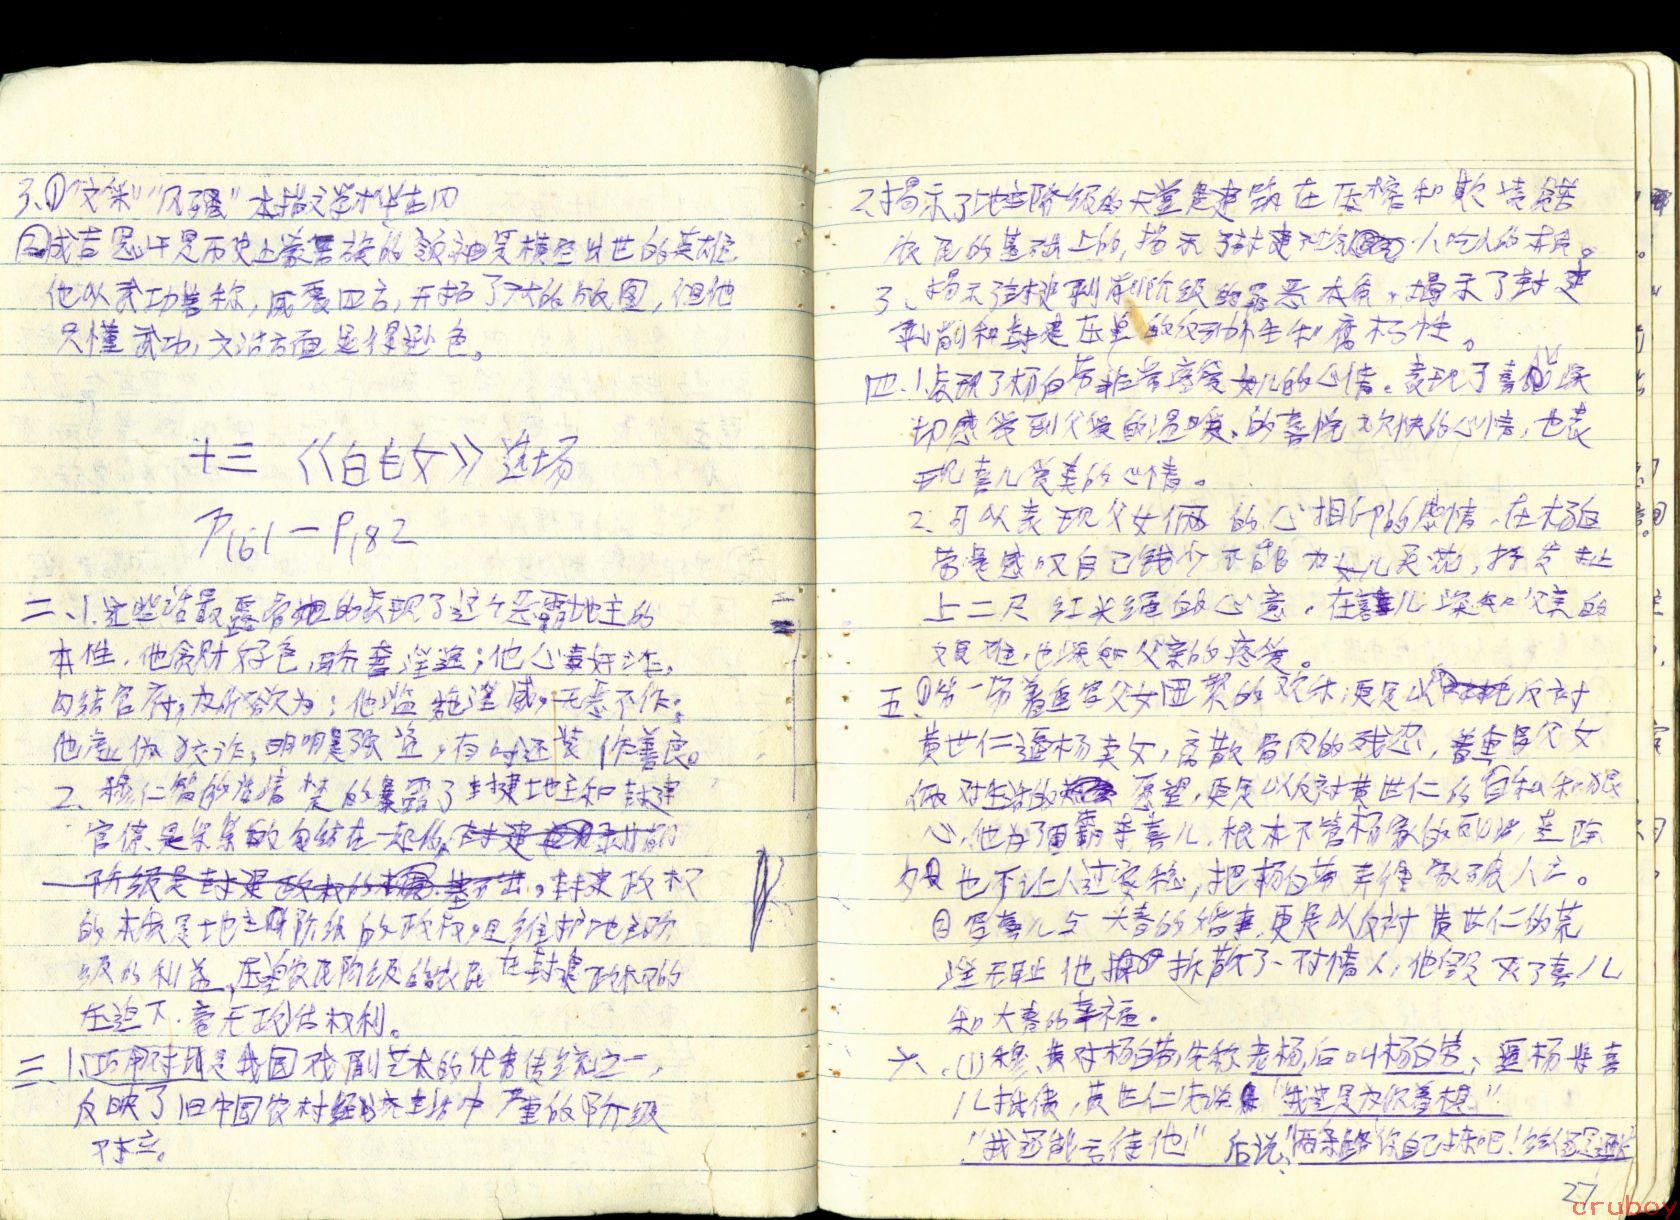 3.①"文采""风骚"本指文学才华古风
②成吉思汗是历史上蒙古族的领袖是横空出世的英雄
他以武功著称,威震四方,开拓了大的版图,但他
只懂武功,文治方面显得逊色。
十三《白毛女》选场
P161—P182
二、1.这些话最露骨地的表现了这个恶霸地主的
本性,他贪财好色,骄奢淫逸;他心毒奸诈,
勾结官府,为所欲为;他滥施淫威,无恶不作;
他虚伪狡诈,明明是强盗,有时还装作善良。
2.穆仁智的 的暴露了封建地主和封建
官僚是 的勾结在一起的,
阶级是封建政权的 基石出。封建政权
的本质是地主阶级的政权,是维护地主阶
级的利益,压迫农民阶级的农民在封建政权的
压迫下,毫无政治权利。
三、1.巧用对比是我国戏剧艺术的优秀传统之一,
反映了旧中国农村经 生活中严重的阶级
对立。
2.揭示了地主阶级的天堂是建筑在压榨和欺 穷苦
农民的基础上的,揭示了封建 人吃人的本质。
3、揭示了封建剥削阶级的罪恶本质,揭示了封建
剥削和封建压迫的反动性和腐朽性。
四、1.表现了杨白劳非常疼爱女儿的心情。表现了喜儿深
切感受到父爱的温暖。的喜悦欢快的心情,也表
现喜儿爱美的心情。
2、可以表现父女俩的心相印的感情,在杨白
劳是感叹自己钱少不能为女儿买花,抒发扯
上二尺红头绳的心意。在喜儿深知父亲的
艰难,也深知父亲的疼爱。
五、①第一场着重写父女团聚的欢乐,更足以 反衬
黄世仁逼杨卖女,离散骨肉的残忍,着重写父女
俩对生活的 愿望,更足以反衬黄世仁的自私和狠
心,他为了霸占喜儿,根本不管杨家的死活,连除
夕 也不让人过安稳,把杨白劳弄得家破人亡。
②写喜儿与大春的婚事,更足以反衬黄世仁的荒
淫无耻他 拆散了一对情人,他毁灭了喜儿
和大春的幸福。
六、(1)穆、黄对杨白劳,先称老杨,后叫杨白劳;逼杨将喜
儿抵债,黄世仁先说 "我这是为你着想"
"我还能亏待他" 后说:"两条路你自己挑吧!
27
cruboy